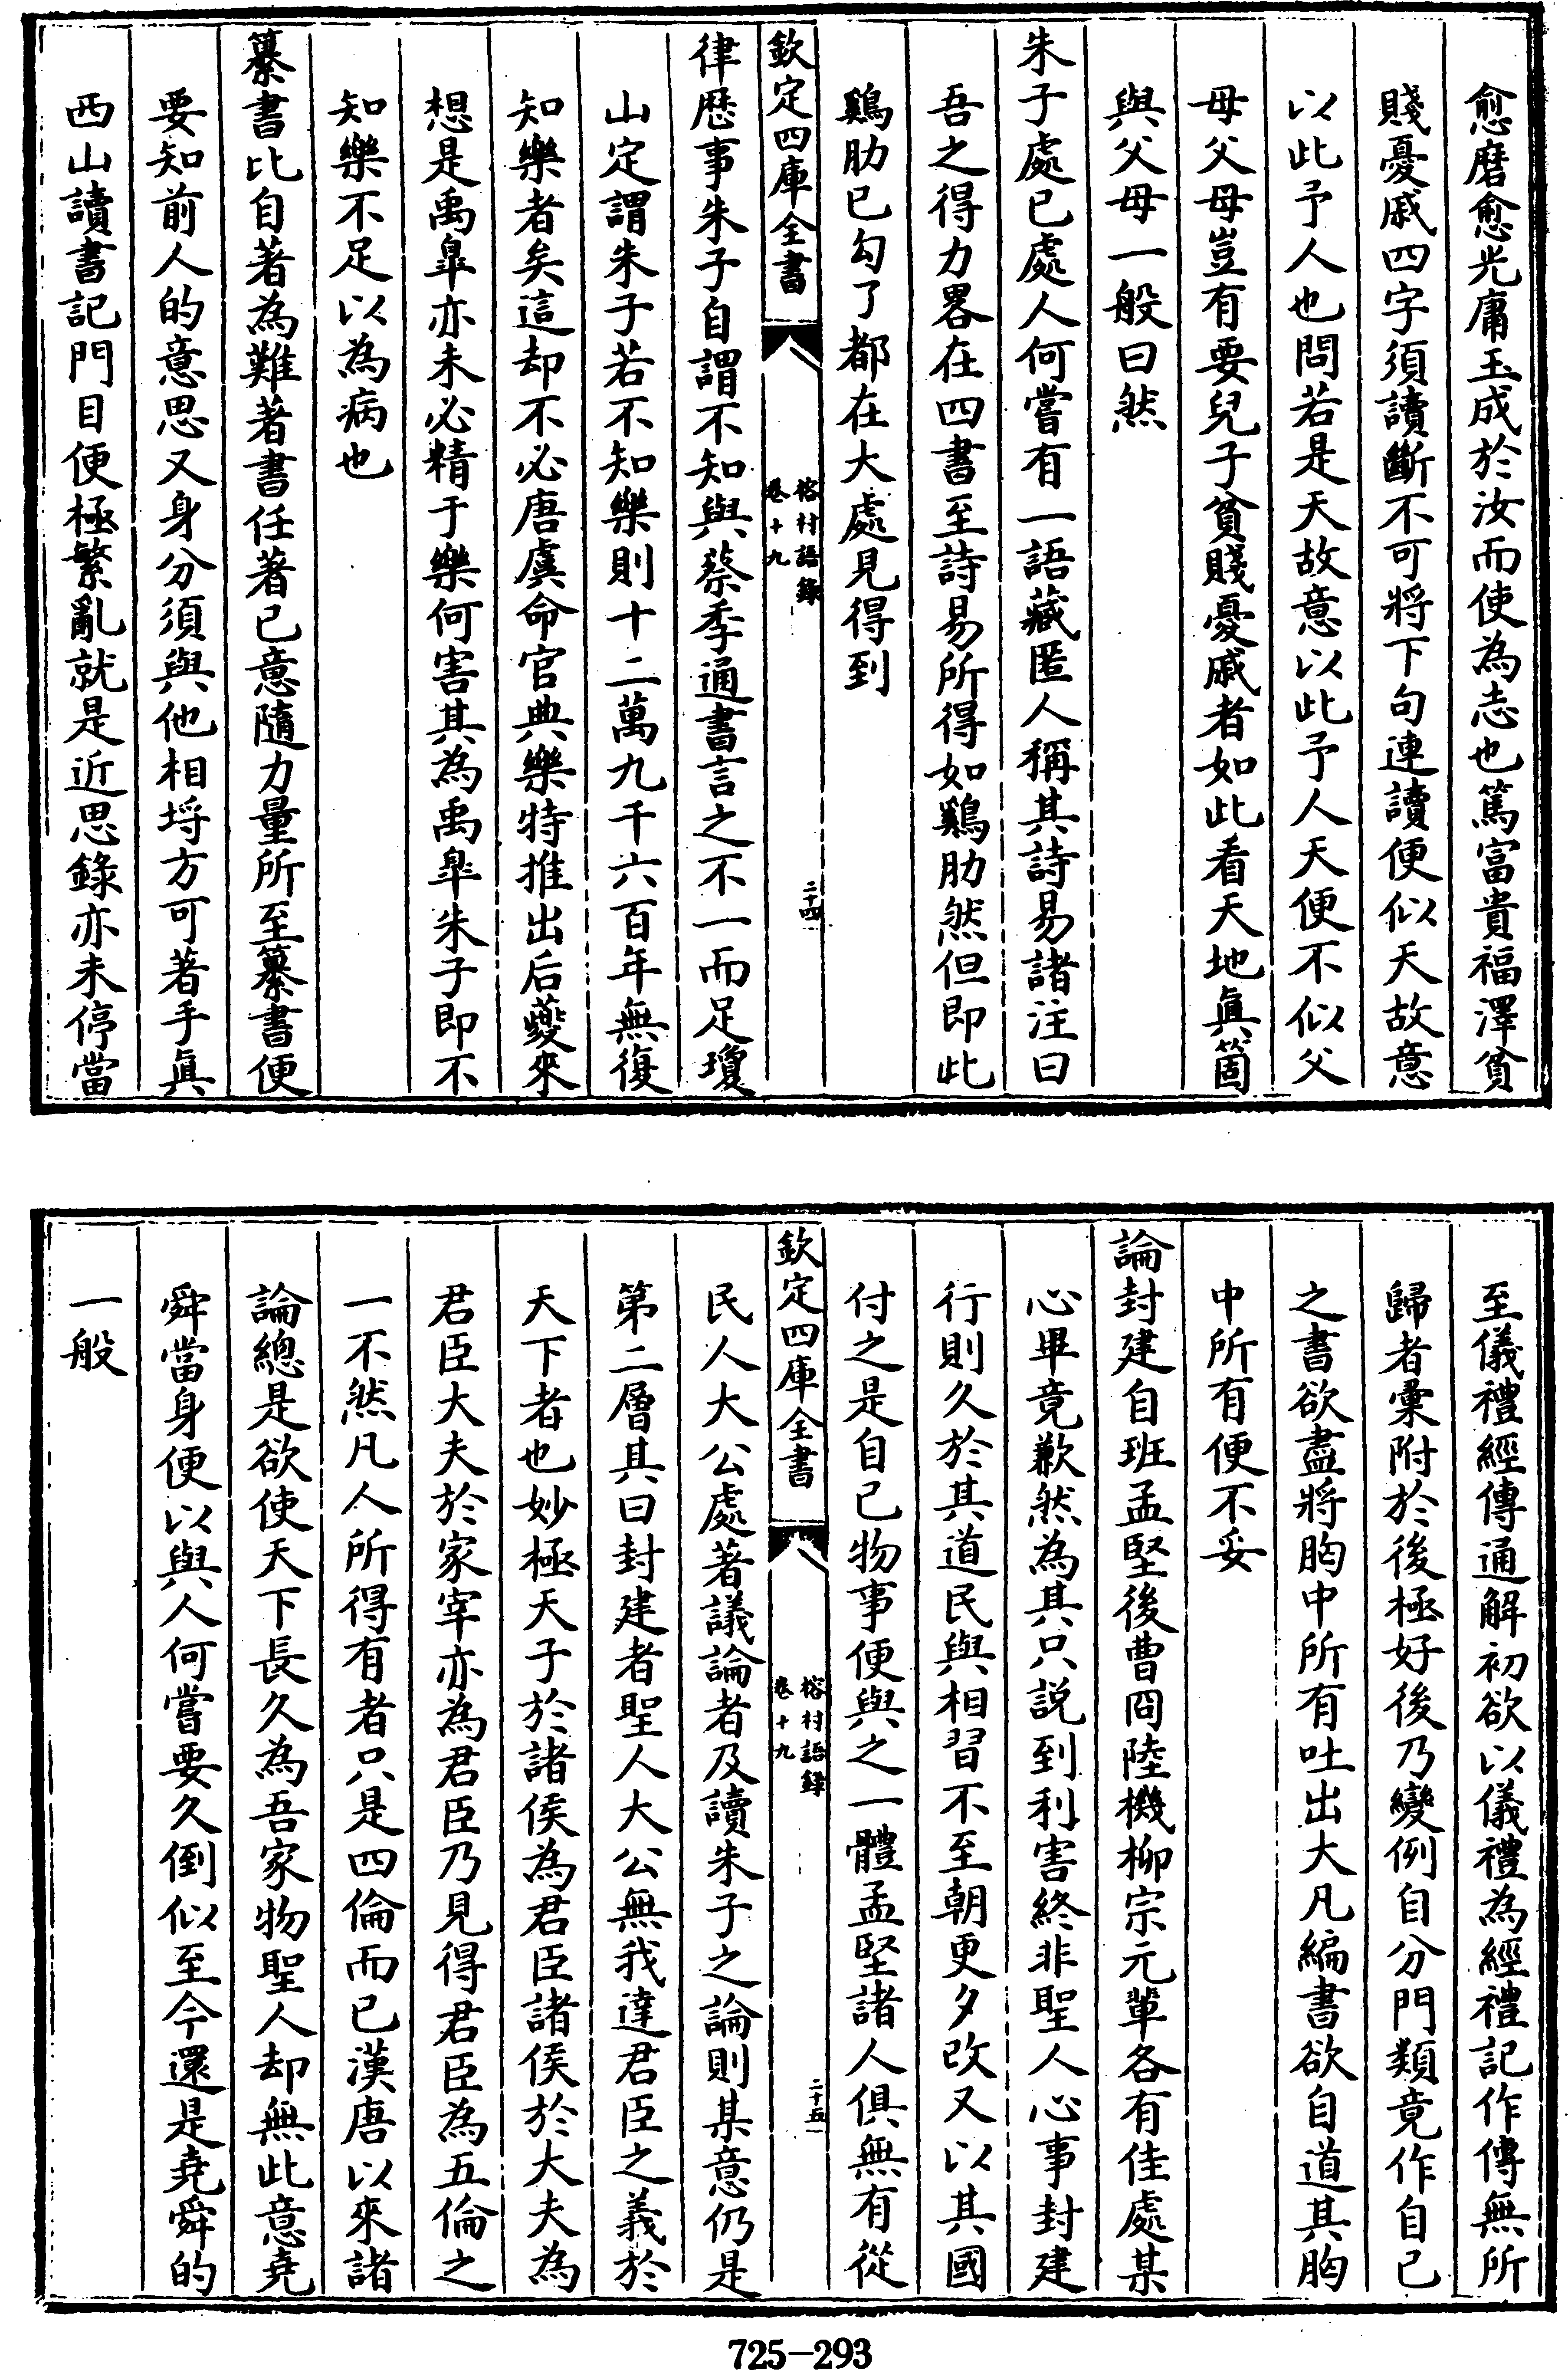 愈磨愈光庸玉成於汝而使為志也篤富貴福澤貧
賤憂戚四字須讀斷不可將下句連讀便似天故意
以此予人也問若是天故意以此予人天便不似父
母父母豈有要兒子貧賤憂戚者如此看天地真箇
與父母一般曰然
朱子處已處人何嘗有一語藏匿人稱其詩易諸注曰
吾之得力畧在四書至詩易所得如鷄肋然但即此
鷄肋已勾了都在大處見得到
欽定四庫全書
榕村語錄
卷十九
二十四
律歷事朱子自謂不知與蔡季通書言之不一而足瓊
山定謂朱子若不知樂則十二萬九千六百年無復
知樂者矣這却不必唐虞命官典樂特推出后夔來
想是禹臯亦未必精于樂何害其為禹臯朱子即不
知樂不足以為病也
纂書比自著為難著書任著已意隨力量所至纂書便
要知前人的意思又身分須與他相埒方可著手真
西山讀書記門目便極繁亂就是近思錄亦未停當
至儀禮經傳通解初欲以儀禮為經禮記作傳無所
歸者彙附於後極好後乃變例自分門類竟作自已
之書欲盡將胸中所有吐出大凡編書欲自道其胸
中所有便不妥
論封建自班孟堅後曹冏陸機柳宗元輩各有佳處某
心畢竟歉然為其只説到利害終非聖人心事封建
行則久於其道民與相習不至朝更夕改又以其國
付之是自已物事便與之一體孟堅諸人俱無有從
欽定四庫全書
榕村語錄
卷十九
二十五
民人大公處著議論者及讀朱子之論則某意仍是
第二層其曰封建者聖人大公無我達君臣之義於
天下者也妙極天子於諸侯為君臣諸侯於大夫為
君臣大夫於家宰亦為君臣乃見得君臣為五倫之
一不然凡人所得有者只是四倫而已漢唐以來諸
論總是欲使天下長久為吾家物聖人却無此意堯
舜當身便以與人何嘗要久倒似至今還是堯舜的
一般
725-293